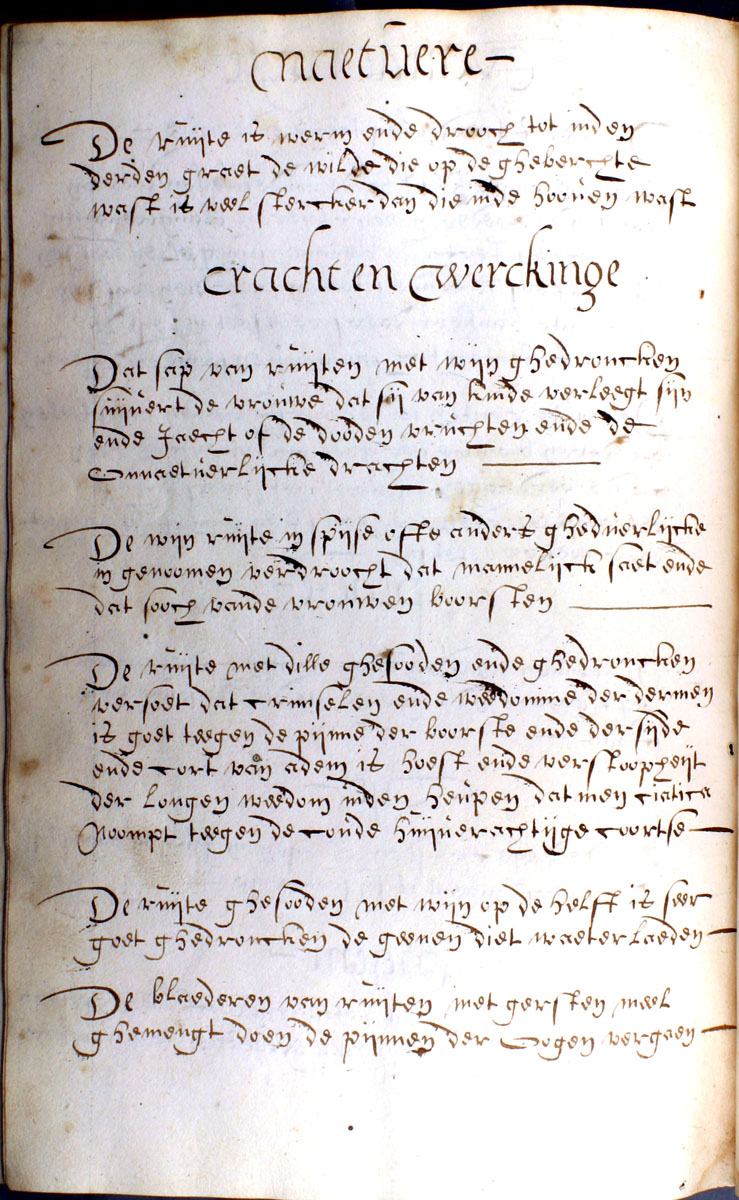 Naetuere
De ruijte is werm ende drooch tot inden
derden graet de wilde die op de gheberchte
wast is veel stercker dan die inde hooven wast
Cracht en Werckinge
Dat sap van ruijten met wijn ghedroncken
suijvert de vrouwe dat sij van kinde verleegt sijn
ende Jaecht of de dooden vruchten ende de
Onnaetuerlijcke drachten
De wijn ruijte in spijse ofte anders ghedverlijcke
in genoomen verdroocht dat mannelijck saet ende
dat sooch vande vrouwen boorsten
De ruijte met dille ghesooden ende ghedroncken
versoet dat crimselen ende weedomme der dermen
is goet teegen de pijnne der boorste ende der sijde
ende cort van adem is hoest ende verstoopheijt
der longen weedom inden heupen datmen ciatica
Noompt teegen de coude huijverachtijge coortse
De ruijte ghesooden met wijn op de helft is seer
goet ghedroncken de geenen diet waeter laeden
De blaederen van ruijten met gersten meel
ghemengt doen de pijnnen der Oogen vergaen